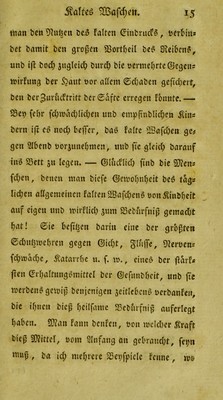 Kaltes Waschen. 15
man den Nutzen des kalten Eindrucks, verbin-
det damit den großen Vortheil des Reibens,
und ist doch zugleich durch die vermehrte Gegen-
wirkung der Haut vor allem Schaden gesichert,
den der Zurücktritt der Säfte erregen könnte. —
Bey sehr schwächlichen und empfindlichen Kin-
dern ist es noch besser, das kalte Waschen ge-
gen Abend vorzunehmen, und sie gleich darauf
ins Bett zu legen. — Glücklich sind die Men-
schen, denen man diese Gewohnheit des täg-
lichen allgemeinen kalten Waschens von Kindheit
auf eigen und wirklich zum Bedürfniß gemacht
hat! Sie besitzen darin eine der größten
Schutzwehren gegen Gicht, Flüsse, Nerven-
schwäche, Katarrhe u. s. w., eines der stärk-
sten Erhaltungsmittel der Gesundheit, und sie
werdens gewiß denjenigen zeitlebens verdanken,
die ihnen dieß heilsame Bedürfniß auferlegt
haben. Man kann denken, von welcher Kraft
dieß Mittel, vom Anfang an gebraucht, seyn
muß, da ich mehrere Beyspiele kenne, wo